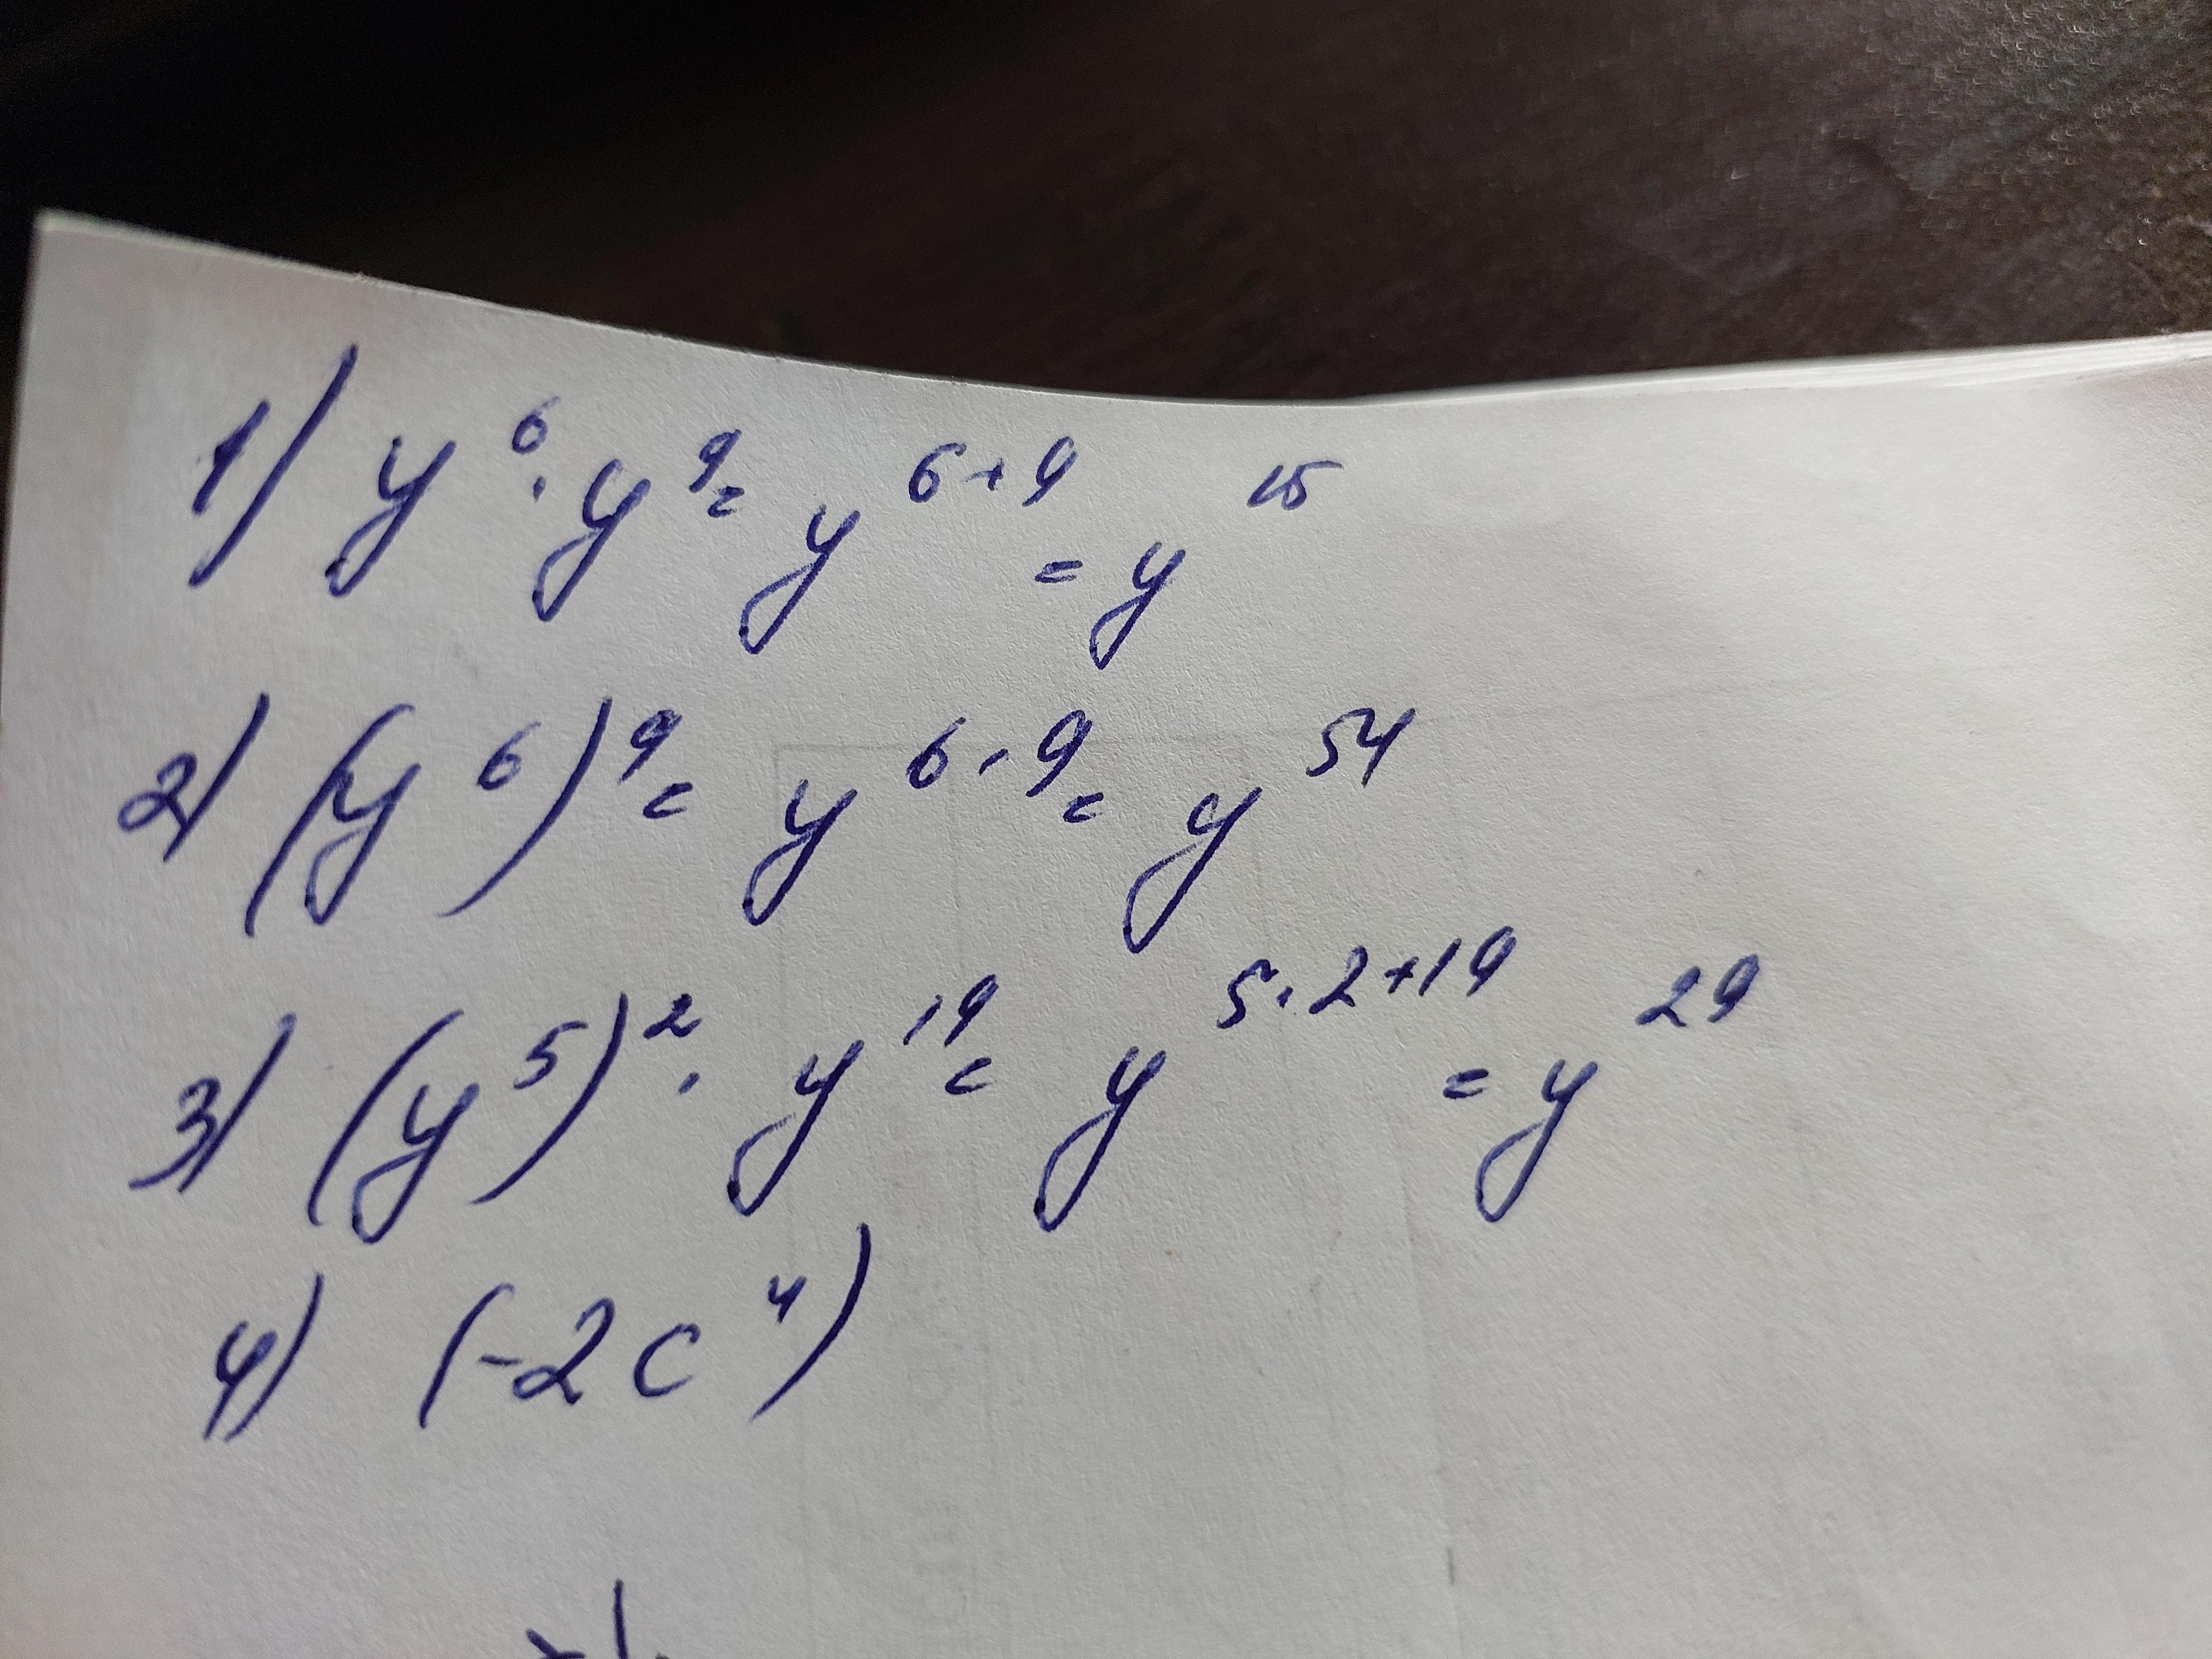 1) y⁶ · y⁹ = y⁶⁺⁹ = y¹⁵
2) (y⁶)⁹ = y⁶·⁹ = y⁵⁴
3) (y⁵)² · y¹⁹ = y⁵·²⁺¹⁹ = y²⁹
4) (-2c⁴)